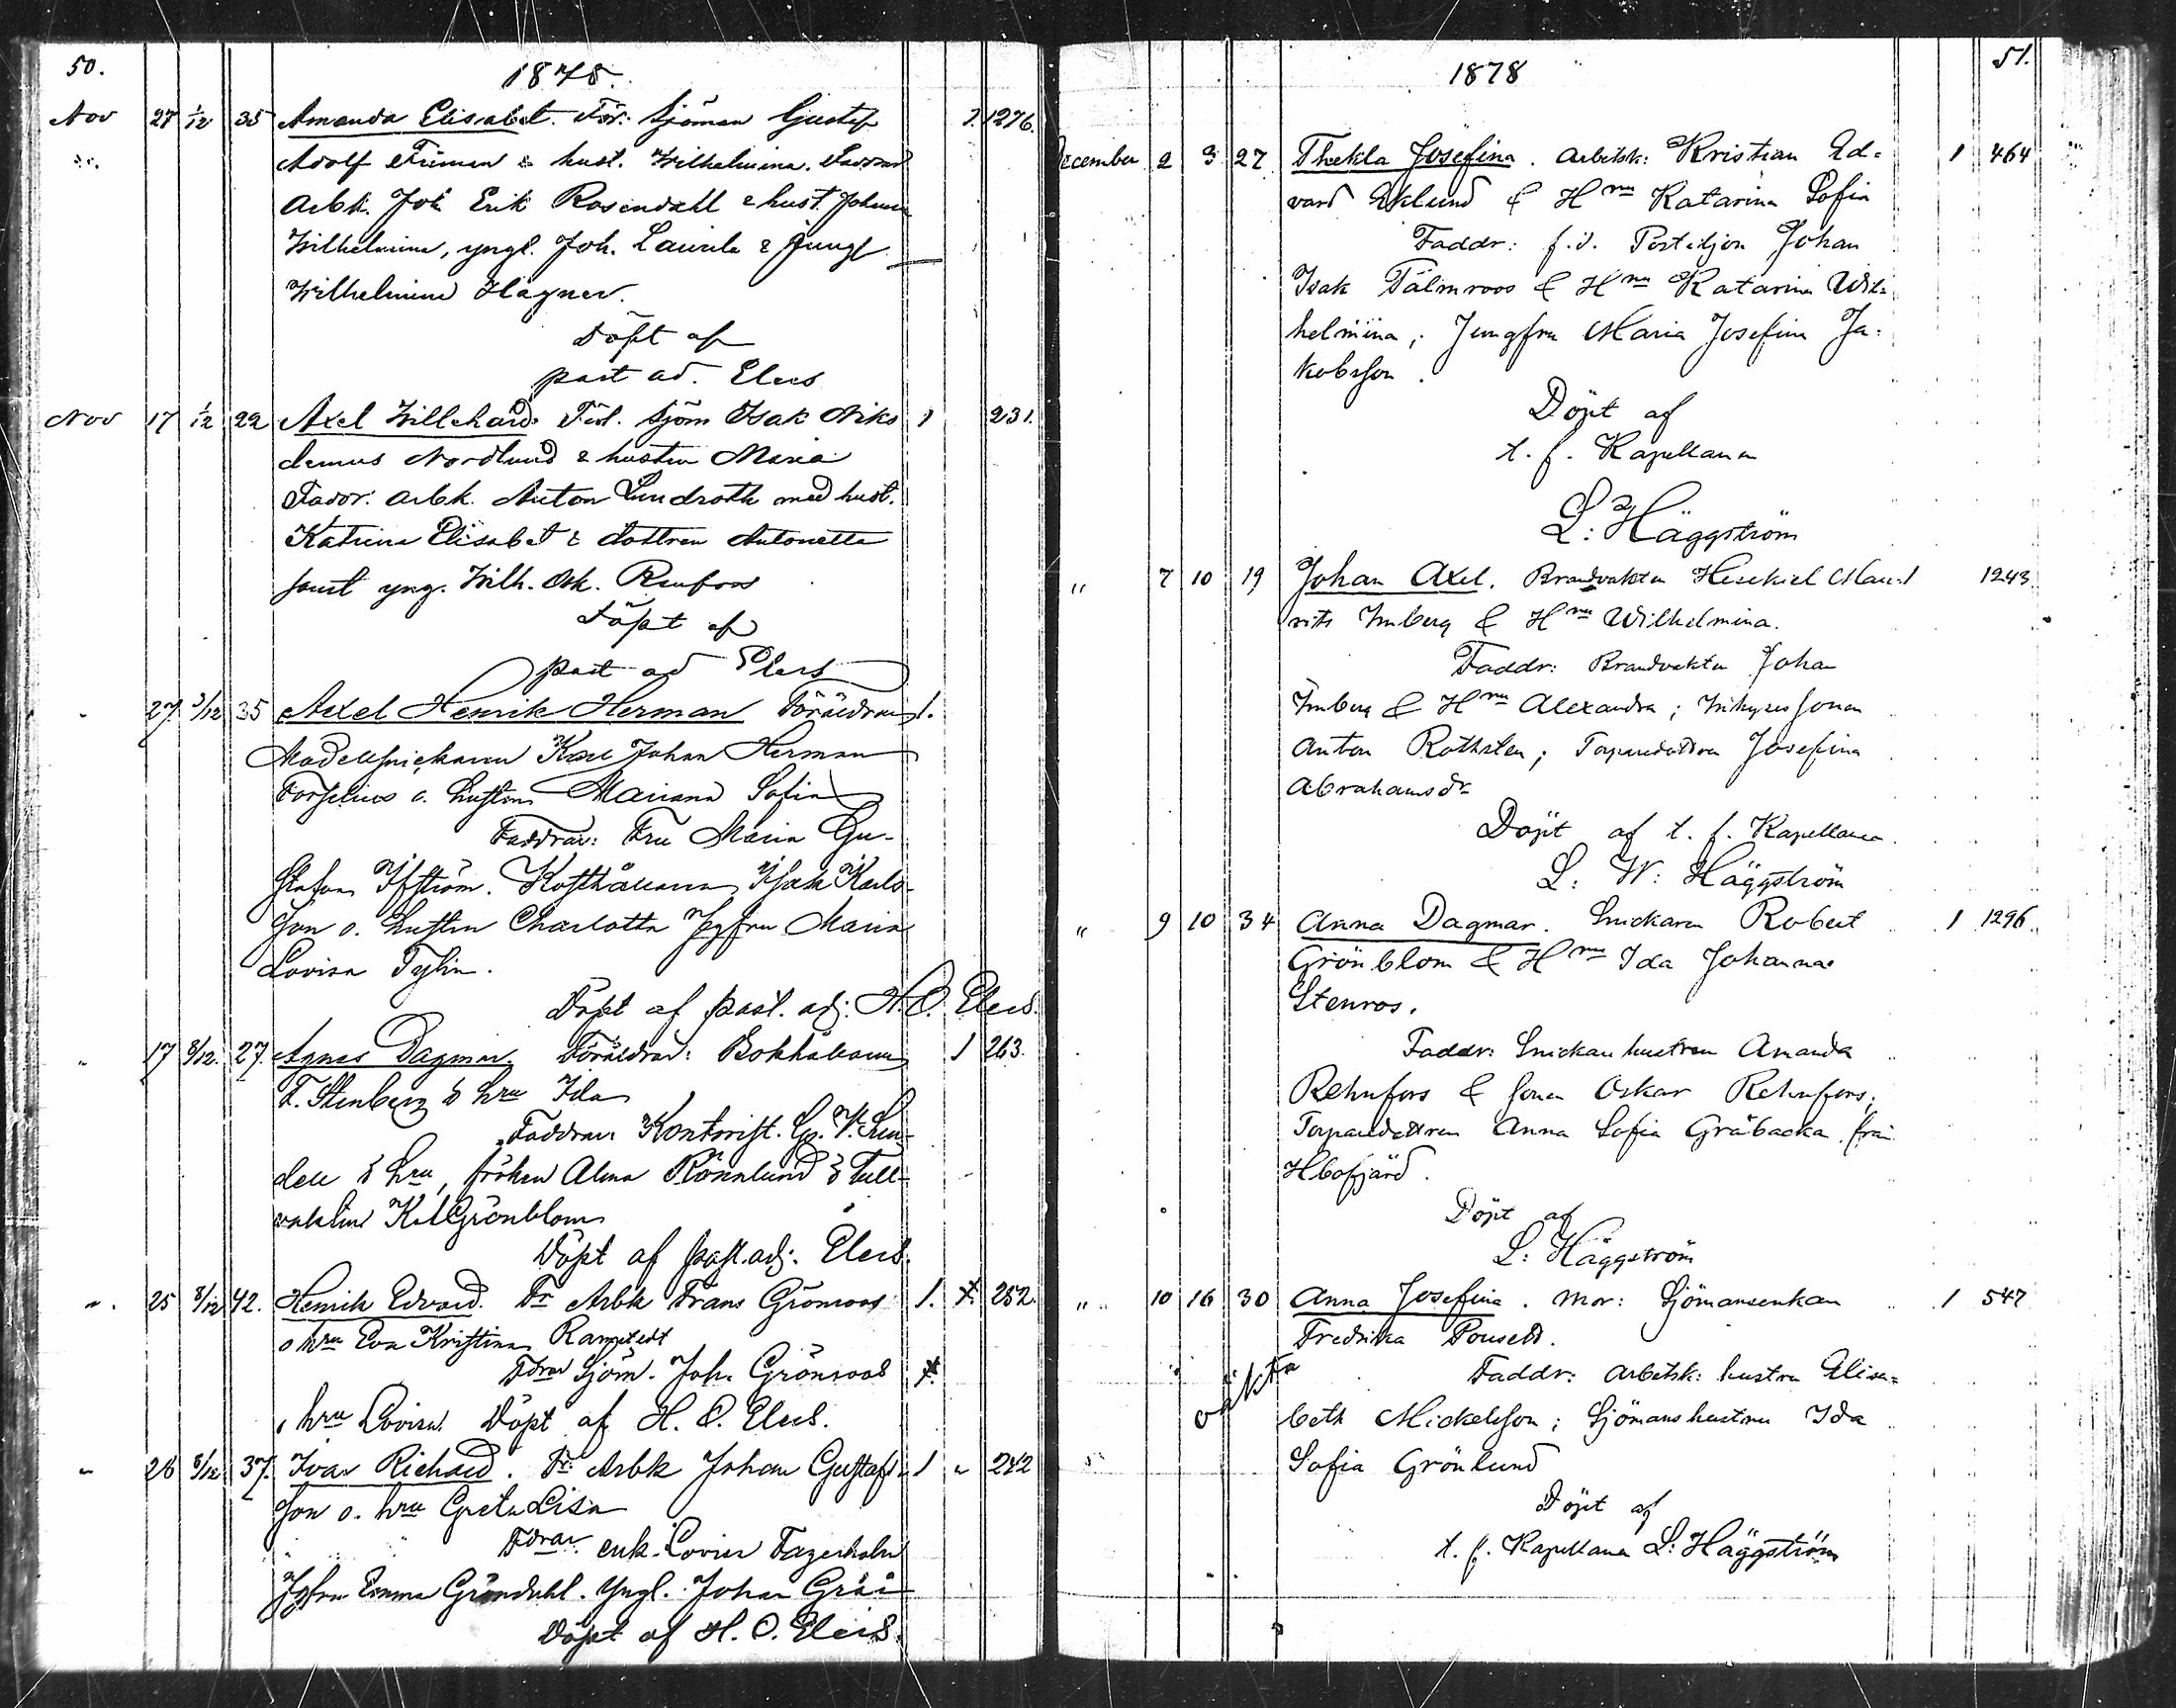 50.
1878.
Nov 27 1/12 35 Amanda Elisabet. För: Sjöman Gustef 1. 1276.
Adolf Friman & hust. Wilhelmina. Faddrar
Arbk. Joh. Erik Rosendahl & hust. Johanna
Wilhelmina, yngl. Joh. Laurila & Jungf
Wilhelmina Hägner.
Döpt af
past ad. Elers
Nov 17 1/12 22 Axel Willehard. Förl. Sjöm Isak Niko 1 231.
demus Nordlund & hustru Maria
Faddr: arbk. Anton Lundroth med hust.
Katrina Elisabet & dottren Antonette
samt yng. Wilh. Osk. Renfors
Döpt af
past ad Elers
" 27 3/12 35 Axel Henrik Herman Föräldrar 1.
Modellsnickaren Karl Johan Herman
Forselius o. hustrun Mariana Sofia
Faddrar: Fru Maria Gu-
stafva Ifström. Kosthållaren Isak Karls-
son o. hustrun Charlotta Jgfrun Maria
Lovisa
Döpt af past. adj. H. O. Elers.
" 17 8/12. 27. Agnes Dagmar. Föräldrar: Bokhållaren 1 263.
F. Stenberg & hru Ida
Faddrar: Kontorist. G. W. Sun-
dell & hru, fröken Alma Rönnlund & Tull-
vaktm Grönblom
Döpt af past. adj. Elers.
" 25 8/12 42. Henrik Edvard. Fr Arbk Frans Grönroos 1. x. 252.
o hru Eva Kristina Ramstedt
Fdrar Sjöm. Joh. Grönroos x.
o hru Lovisa. Döpt af H. O. Elers.
" 26 8/12 37. Ivar Richard. Fr. Arbk Johan Gustafs- 1 " 242
son o. hru Greta Lisa
Fdrar enk. Lovisa Fagerholm
Jgfrun Emma Gröndahl. Yngl. Johan
Döpt af H. O. Elers.
51.
1878
December 2 3 27 Thekla Josefina. Arbetsk: Kristian Ed- 1 464
vard Eklund & Hru Katarina Sofia
Faddr: f.d. Postiljon Johan
Isak Tälmroos & Hru Katarina Wil-
helmina; Jungfru Maria Josefina Ja-
kobsson.
Döpt af
t. f. Kapellanen
L: Häggström
" 7 10 19 Johan Axel. Brandvakten Hesekiel Mau- 1 1243.
rits Imberg & Hru Wilhelmina.
Faddr: Brandvakten Johan
Imberg & Hru Alexandra; Inhyses sonen
Anton Rothsten; Torparedottren Josefina
Abrahamsdr
Döpt af t. f. Kapellanen
L: W: Häggström
" 9 10 34 Anna Dagmar. Snickaren Robert 1 1296.
Grönblom & Hru Ida Johanna
Stenros.
Faddr: Snickarehustrun Amanda
Rehnfors & sonen Oskar Rehnfors;
Torparedottren Anna Sofia Gråbacka från
Hbofjärd.
Döpt af
L: Häggström
" 10 16 30 Anna Josefina. Mor: Sjömansenkan 1 547
Fredrika Pousett.
oäkta
Faddr: Arbetsk: hustru Elisa-
beth Mickelsson; Sjömanshustrun Ida
Sofia Grönlund
Döpt af
t. f. Kapellanen L: Häggström